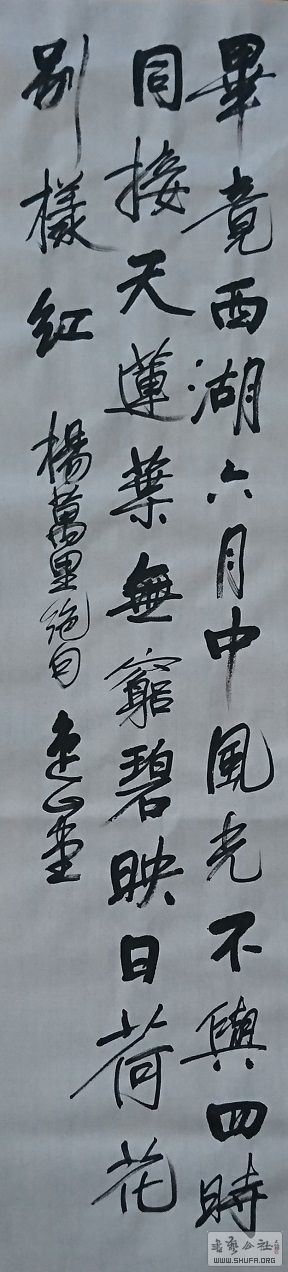 畢竟西湖六月中風光不與四時
同接天蓮葉無窮碧映日荷花
別樣紅 楊萬里絕句
WWW.SHUFA.ORG